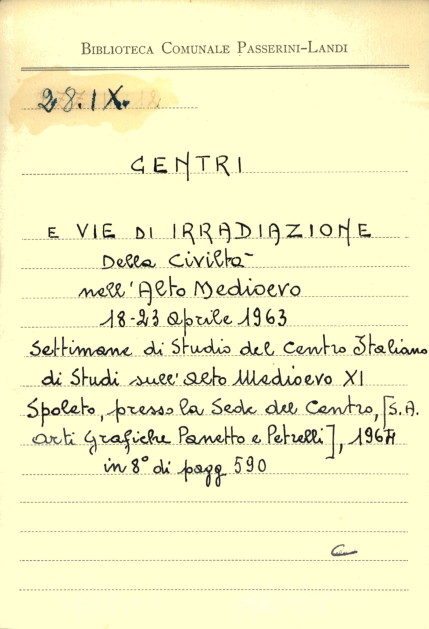 BIBLIOTECA COMUNALE PASSERINI-LANDI
28.IX.
CENTRI
E VIE DI IRRADIAZIONE
Della Civiltà
nell'Alto Medioevo
18-23 aprile 1963
Settimane di Studio del Centro Italiano
di Studi sull'alto Medioevo XI
Spoleto, presso la Sede del Centro, [S.A.
arti Grafiche Panetto e Petrelli], 1964
in 8° di pagg 590